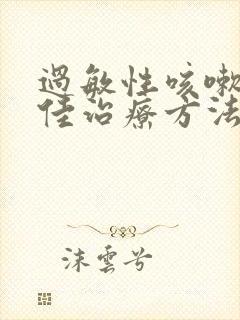 過敏性咳嗽
佳治療方法
沫雲兮